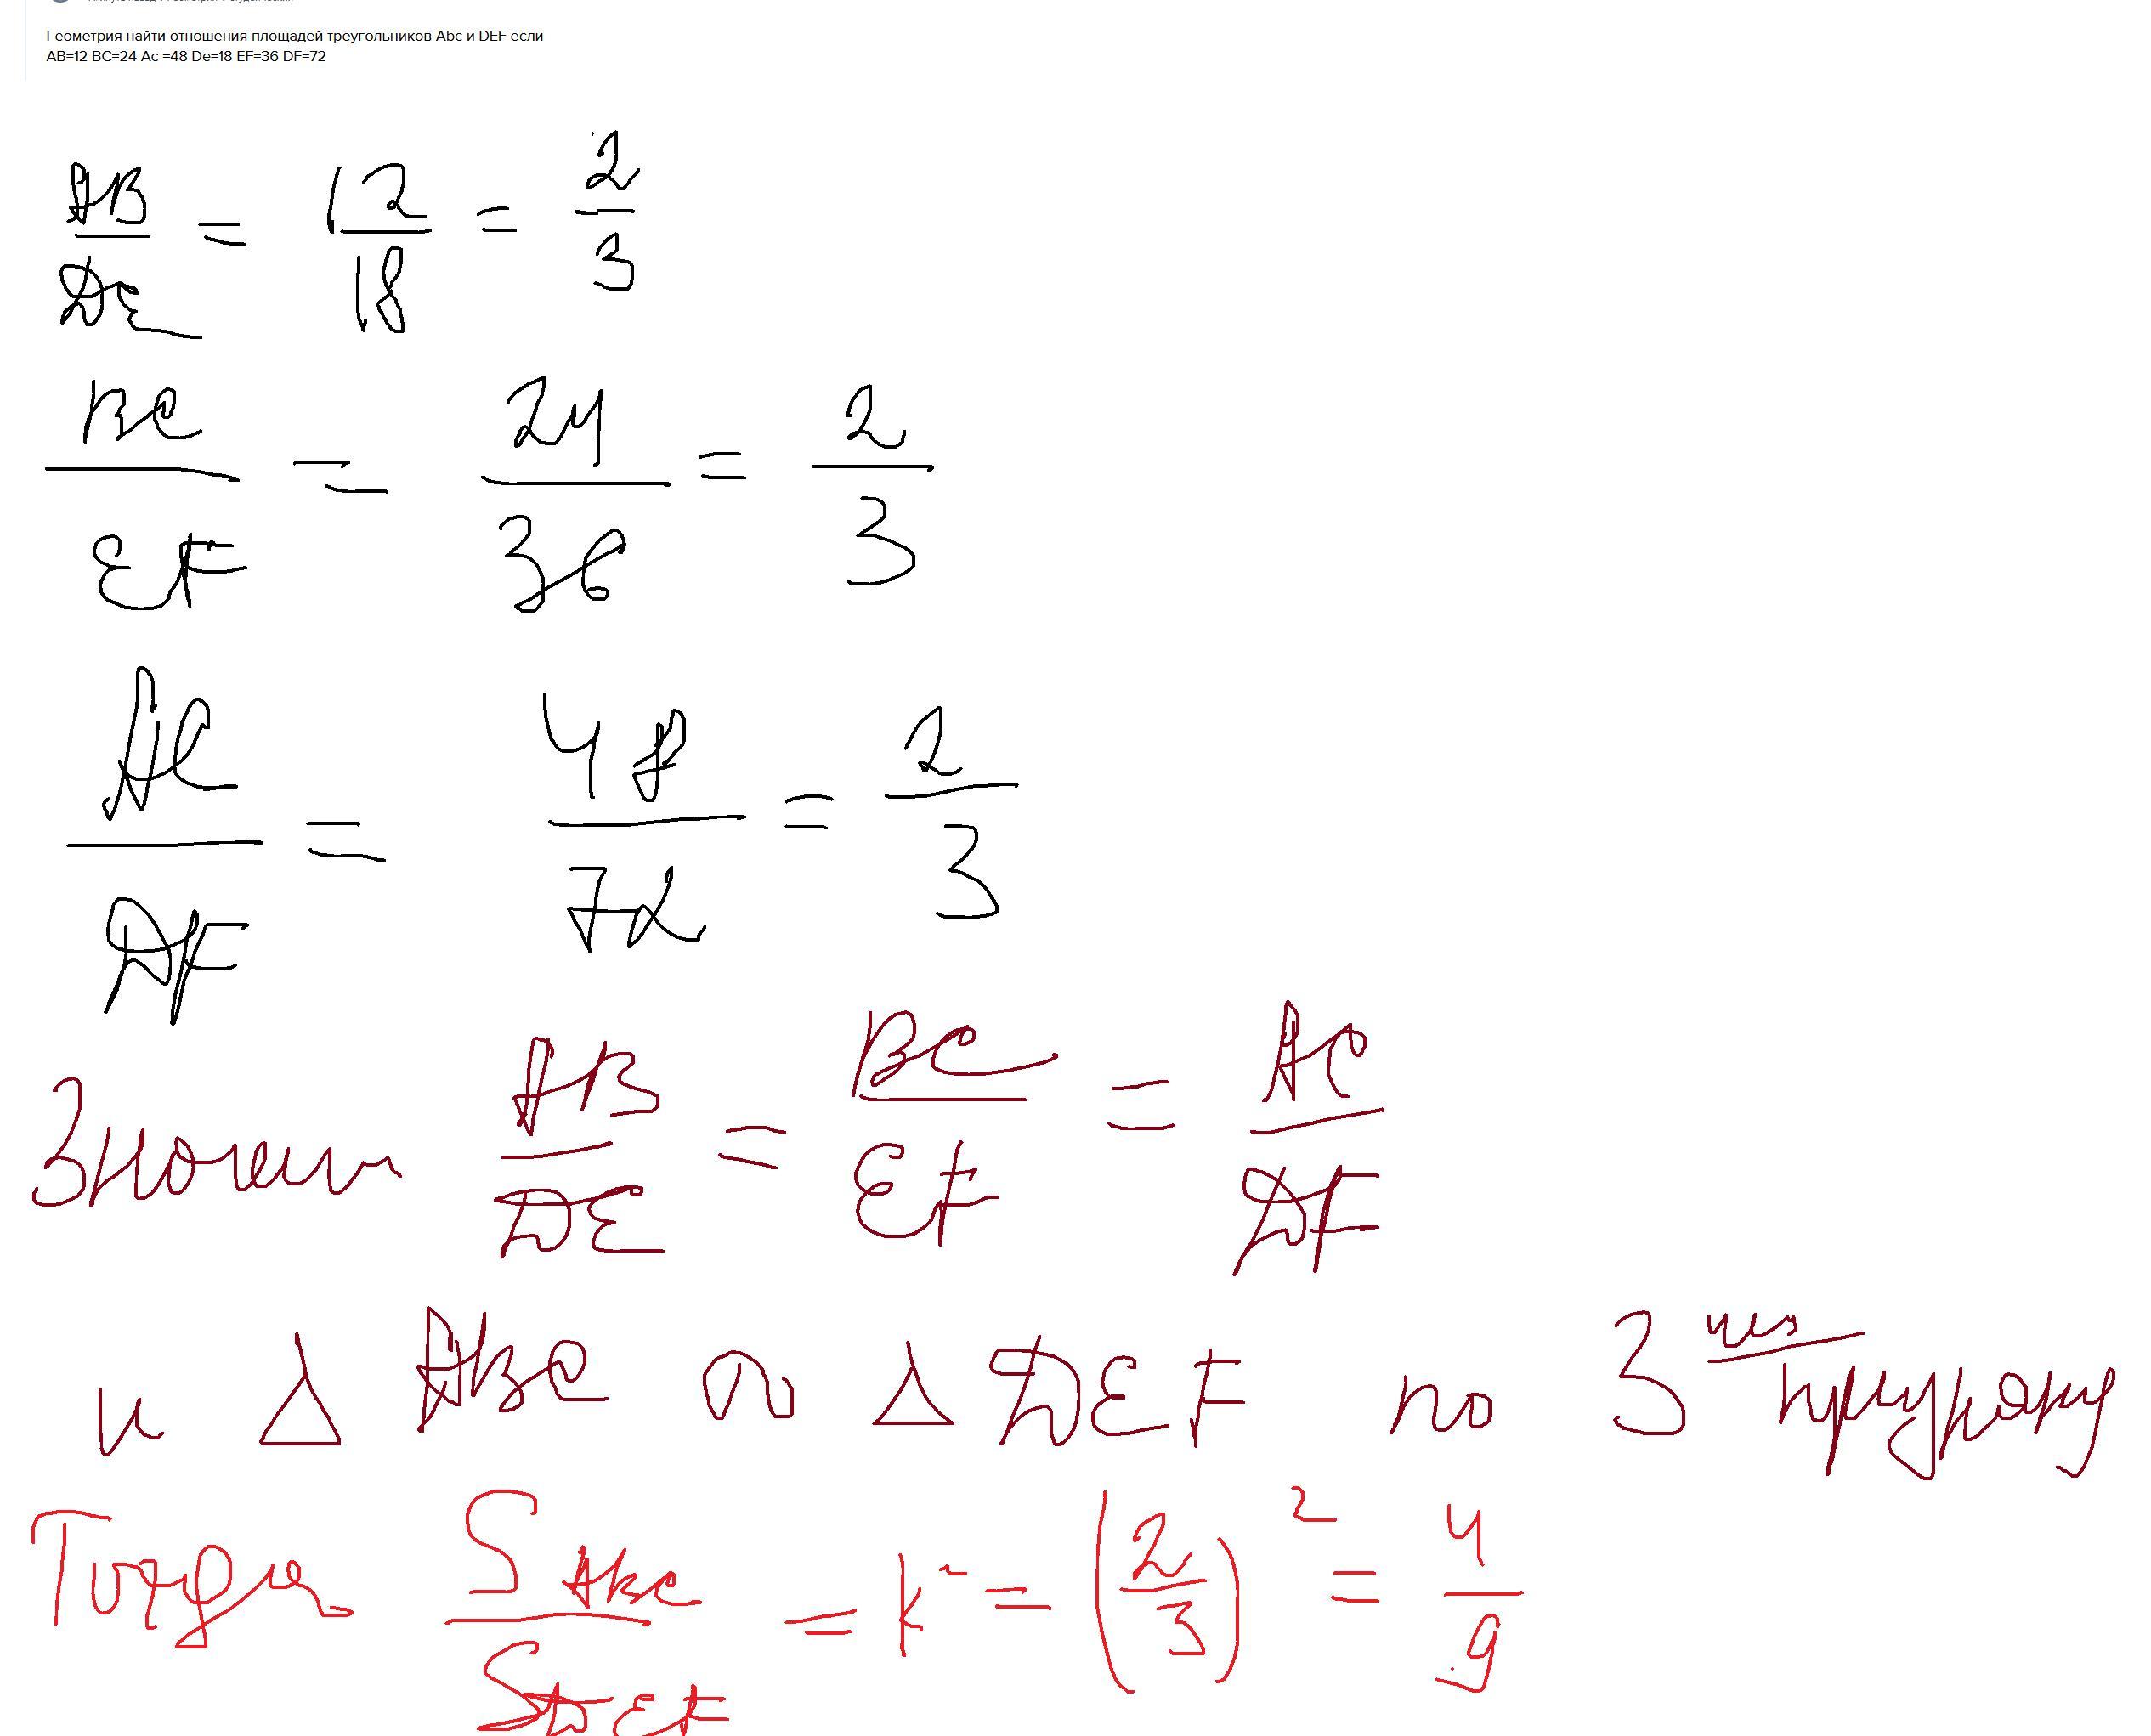 Геометрия найти отношения площадей треугольников Abc и DEF если
AB=12 BC=24 Ac =48 De=18 EF=36 DF=72
AB/DE = 12/18 = 2/3
BC/EF = 24/36 = 2/3
AC/DF = 48/72 = 2/3
Значит AB/DE = BC/EF = AC/DF
и △ ABC ∾ △ DEF по 3 признаку
Тогда S ABC / S DEF = k² = (2/3)² = 4/9